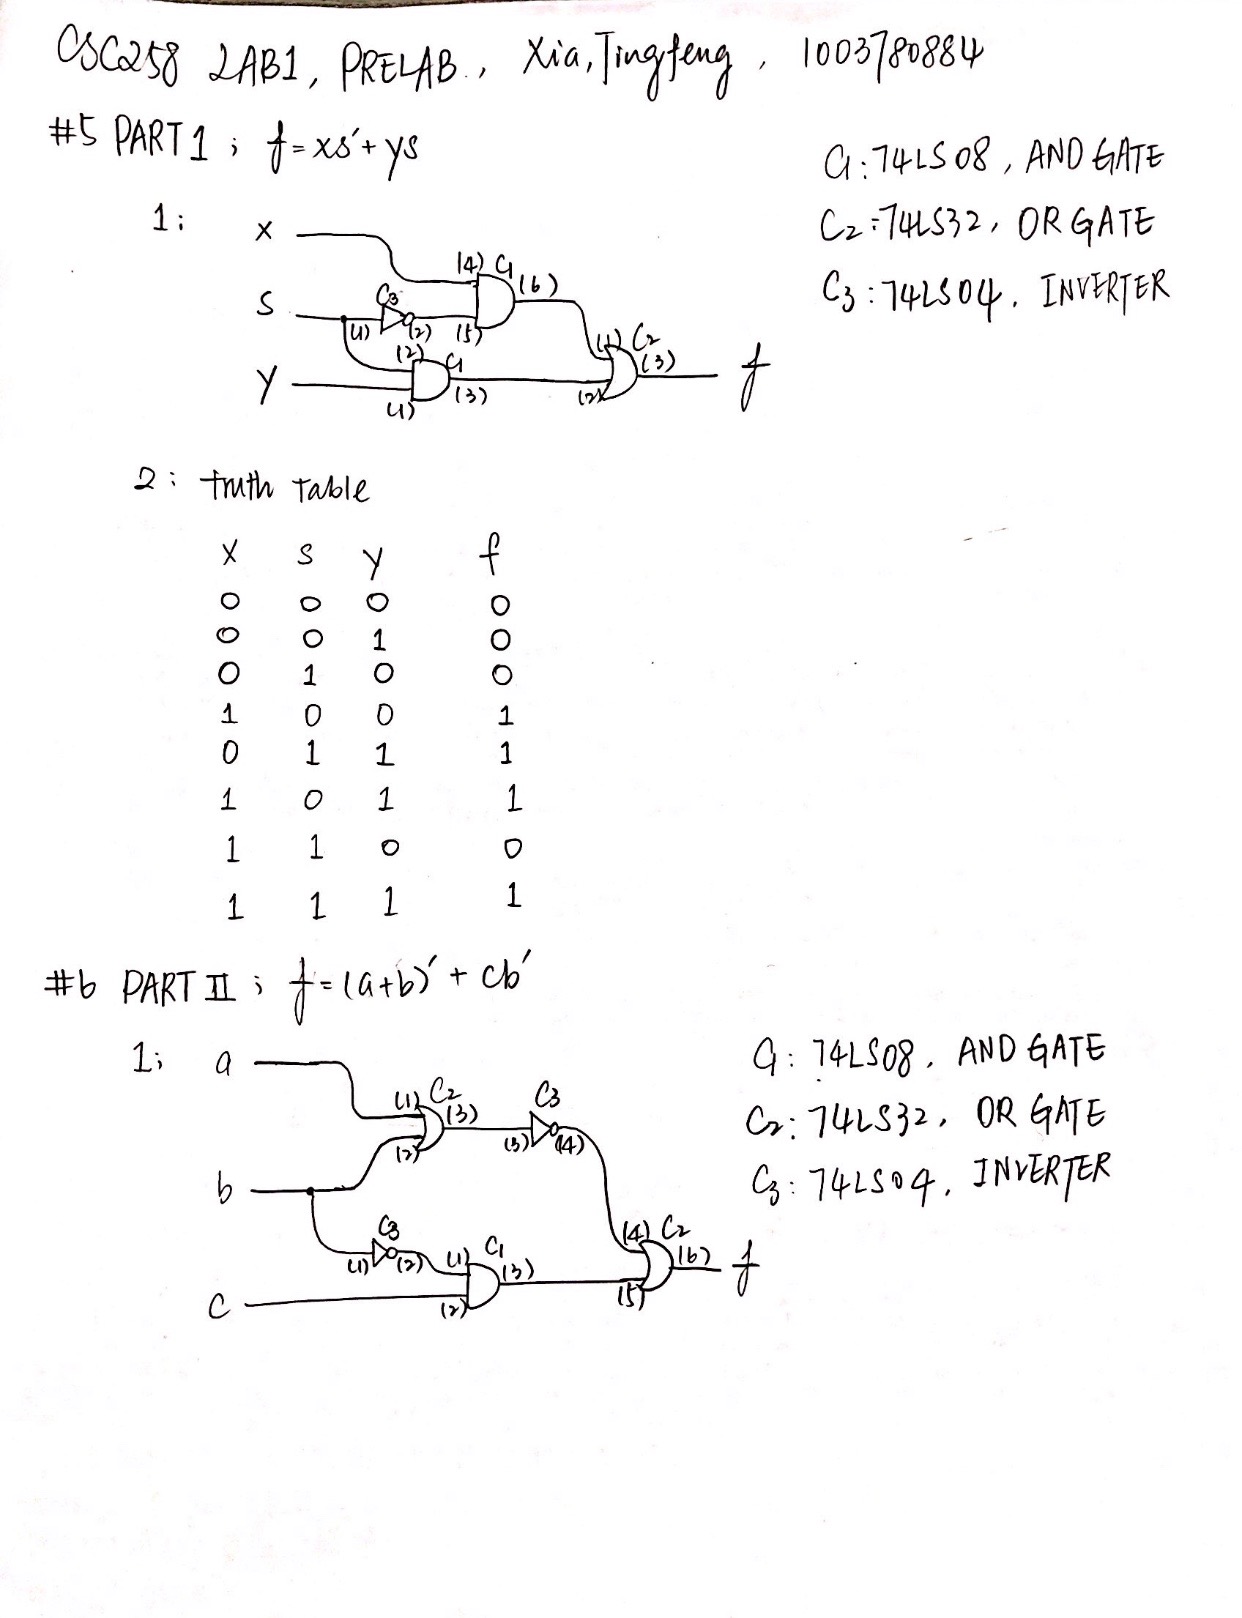 CSC258 LAB1, PRELAB., Xia, Tingfeng, 1003780884
#5 PART 1; f = xs' + ys
C1: 74LS08, AND GATE
C2: 74LS32, OR GATE
C3: 74LS04, INVERTER
1:
X
(4) C1
(6)
S
C3
(1) (2) (5)
(1) C2
(3)
f
(2) C1
Y
(1)
(3)
(2)
2: truth table
X S Y f
0 0 0 0
0 0 1 0
0 1 0 0
1 0 0 1
0 1 1 1
1 0 1 1
1 1 0 0
1 1 1 1
#6 PART II; f = (a+b)' + cb'
C1: 74LS08, AND GATE
C2: 74LS32, OR GATE
C3: 74LS04, INVERTER
1;
a
(1) C2
(3)
(2)
C3
(3) (4)
b
C3
(1) (2)
(1) C1
(3)
(4) C2
(6) f
(5)
C
(2)